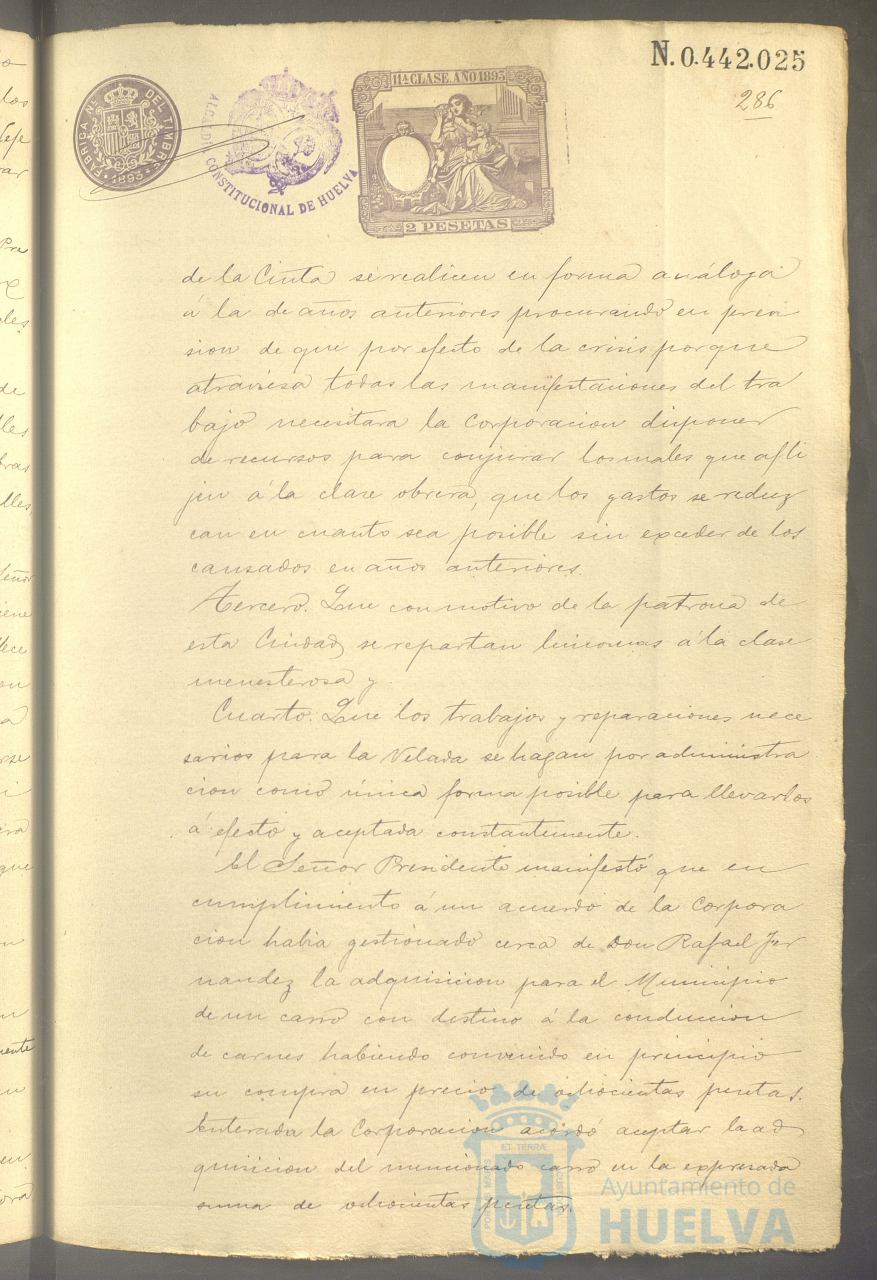 N. 0.442.025
286
FABRICA Nl. DEL TIMBRE
1893
ALCALDIA CONSTITUCIONAL DE HUELVA
11ª CLASE. AÑO 1893
2 PESETAS
de la Cinta se realicen en forma análoga
á la de años anteriores procurando en previ
sion de que por efecto de la crisis porque
atraviesa todas las manifestaciones del tra
bajo necesitara la Corporacion disponer
de recursos para conjurar los males que afli
jen á la clase obrera, que los gastos se reduz
can en cuanto sea posible sin exceder de los
causados en años anteriores.
Tercero. Que con motivo de la patrona de
esta Ciudad, se repartan limosnas á la clase
menesterosa y
Cuarto. Que los trabajos y reparaciones nece
sarios para la Velada se hagan por administra
cion como única forma posible para llevarlos
á efecto y aceptada constantemente.
El Señor Presidente manifestó que en
cumplimiento á un acuerdo de la Corpora
cion habia gestionado cerca de Don Rafael Fer
nandez la adquisicion para el Municipio
de un carro con destino á la conduccion
de carnes habiendo convenido en principio
su compra en precio de ochocientas pesetas.
Enterada la Corporacion acordó aceptar la ad
quisicion del mencionado carro en la expresada
suma de ochocientas pesetas.
ET TERRÆ
Ayuntamiento de
HUELVA